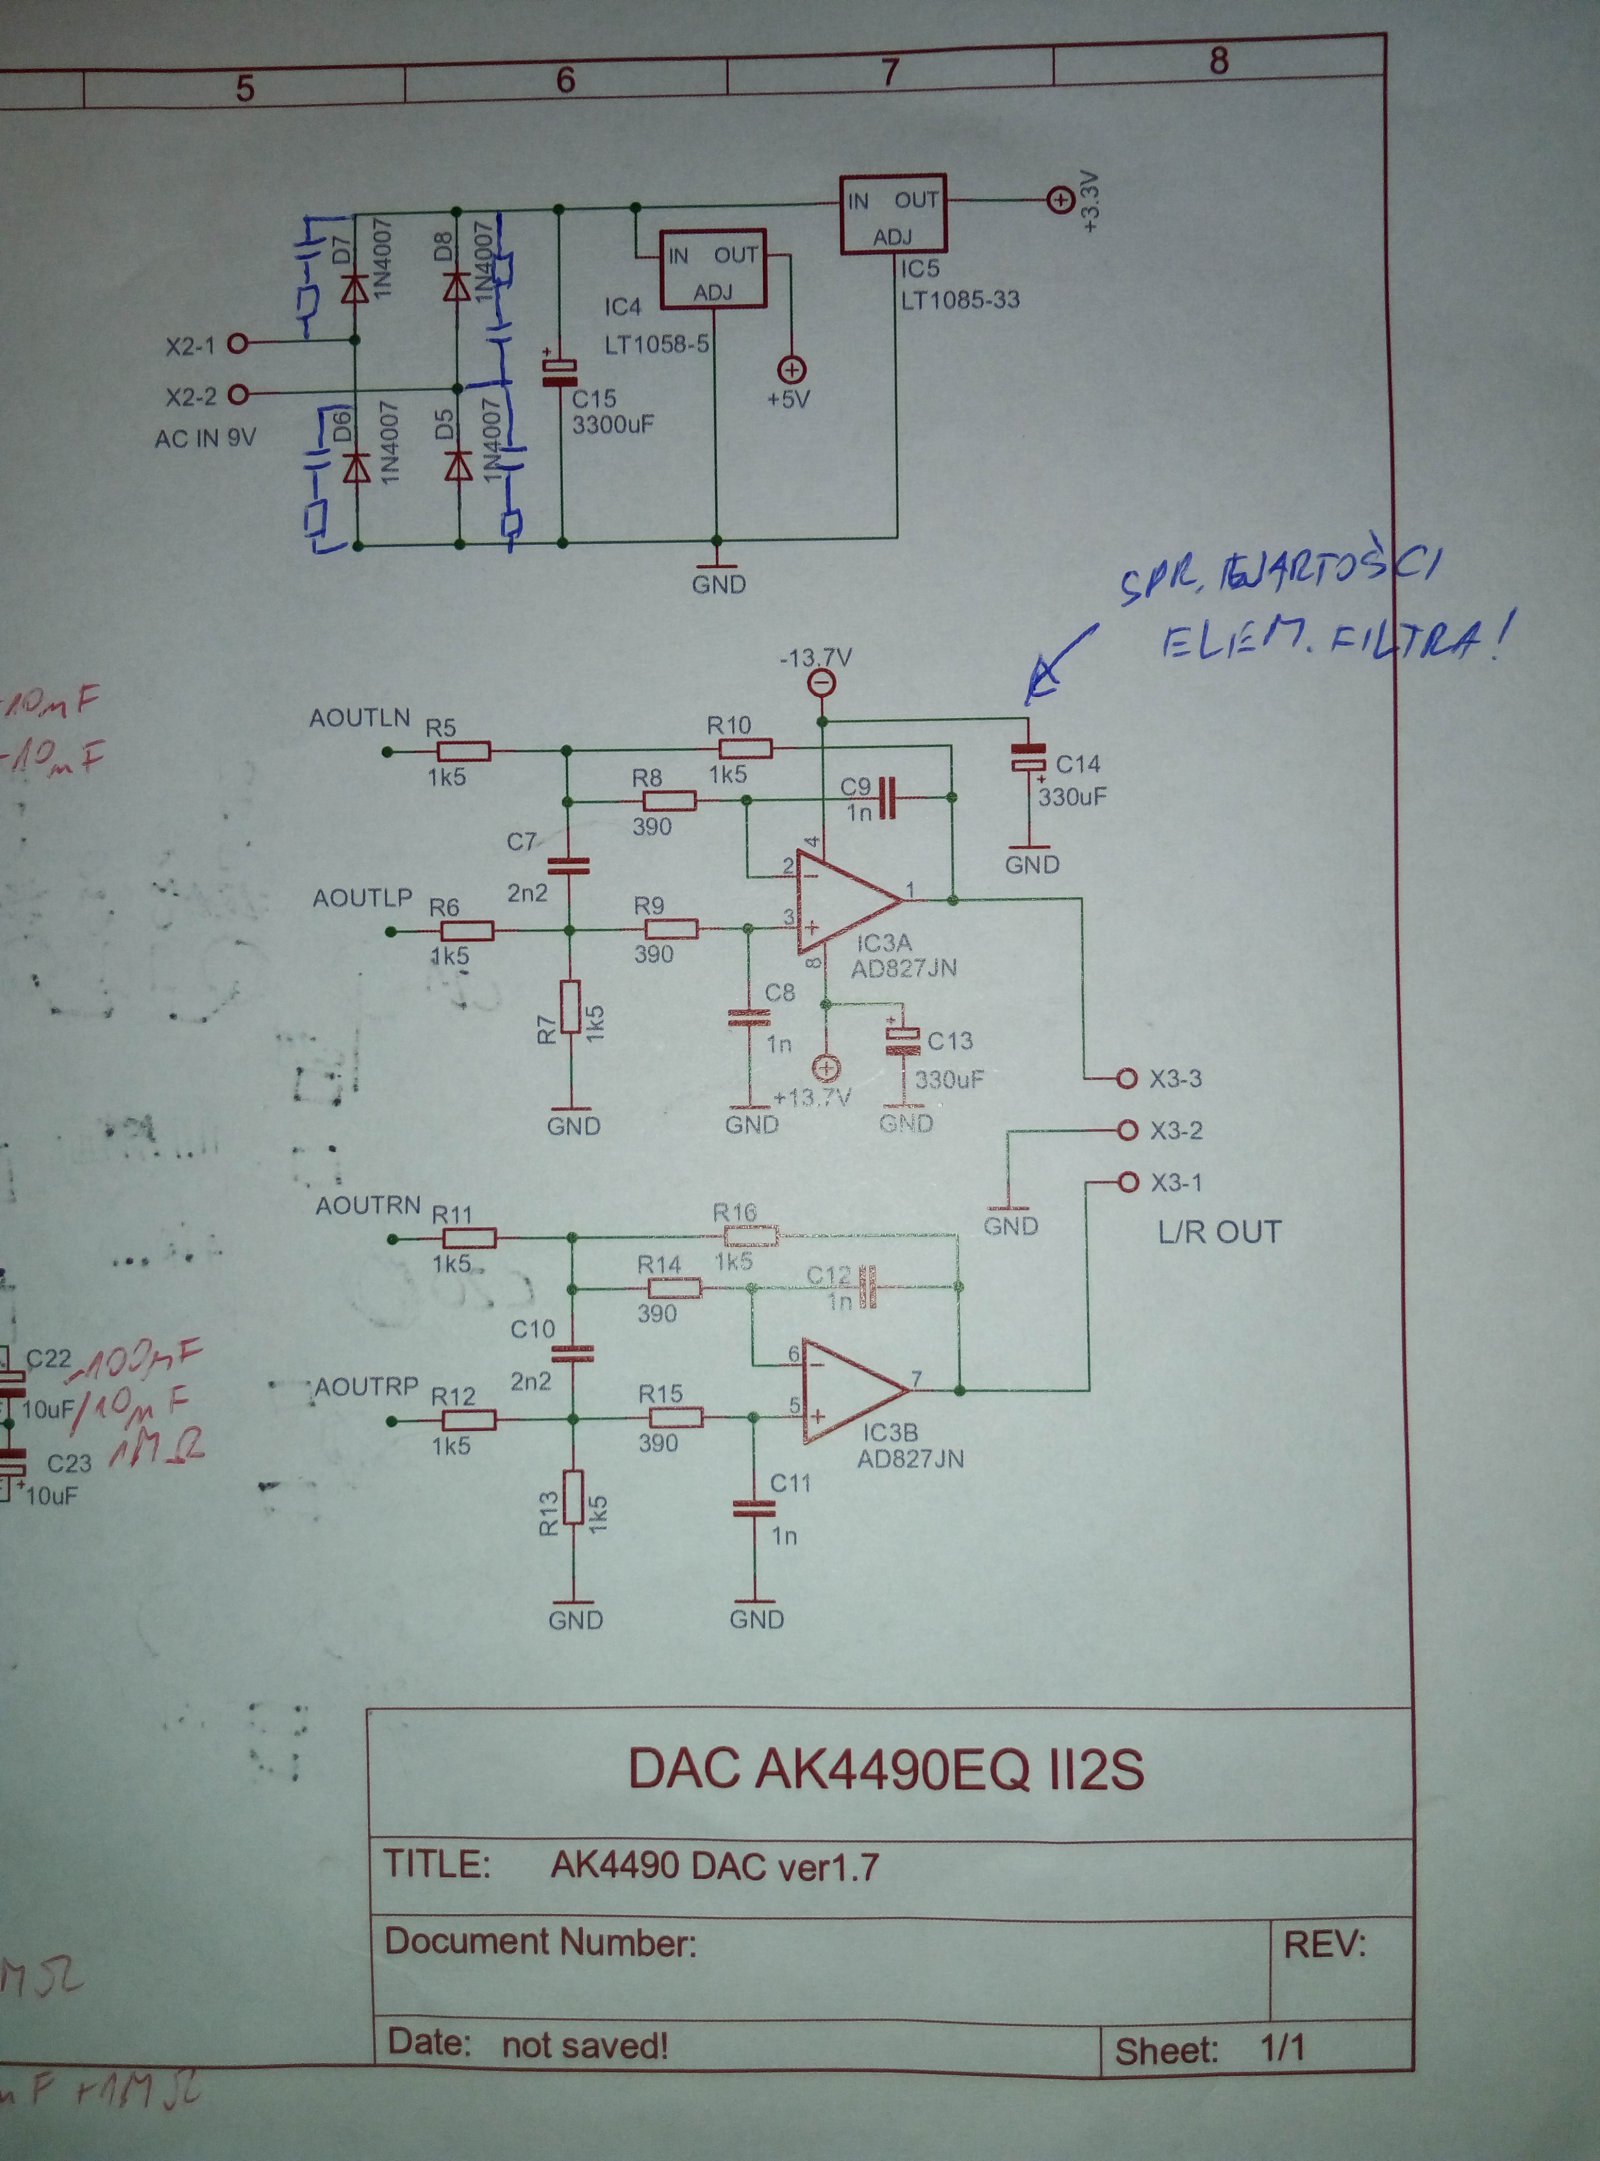 5 6 7 8
D7
1N4007
D8
1N4007
IN OUT
ADJ
IC4
LT1058-5
IN OUT
ADJ
IC5
LT1085-33
+3.3V
+5V
X2-1
X2-2
AC IN 9V
D6
1N4007
D5
1N4007
+
C15
3300uF
GND
SPR. WARTOŚCI
ELEM. FILTRA!
-13.7V
AOUTLN
R5
1k5
R10
1k5
R8
390
C9
1n
C14
+
330uF
GND
C7
2n2
AOUTLP
R6
1k5
R9
390
2
3
4
8
1
IC3A
AD827JN
R7
1k5
C8
1n
C13
+
330uF
+13.7V
GND
GND
GND
X3-3
X3-2
X3-1
GND
L/R OUT
AOUTRN
R11
1k5
R16
1k5
R14
390
C12
1n
C10
2n2
AOUTRP
R12
1k5
R15
390
6
5
7
IC3B
AD827JN
R13
1k5
C11
1n
GND
GND
10mF
10mF
C22
100mF
10uF
/10mF
C23
1MΩ
+
10uF
MΩ
F +1MΩ
DAC AK4490EQ II2S
TITLE: AK4490 DAC ver1.7
Document Number:
REV:
Date: not saved!
Sheet: 1/1